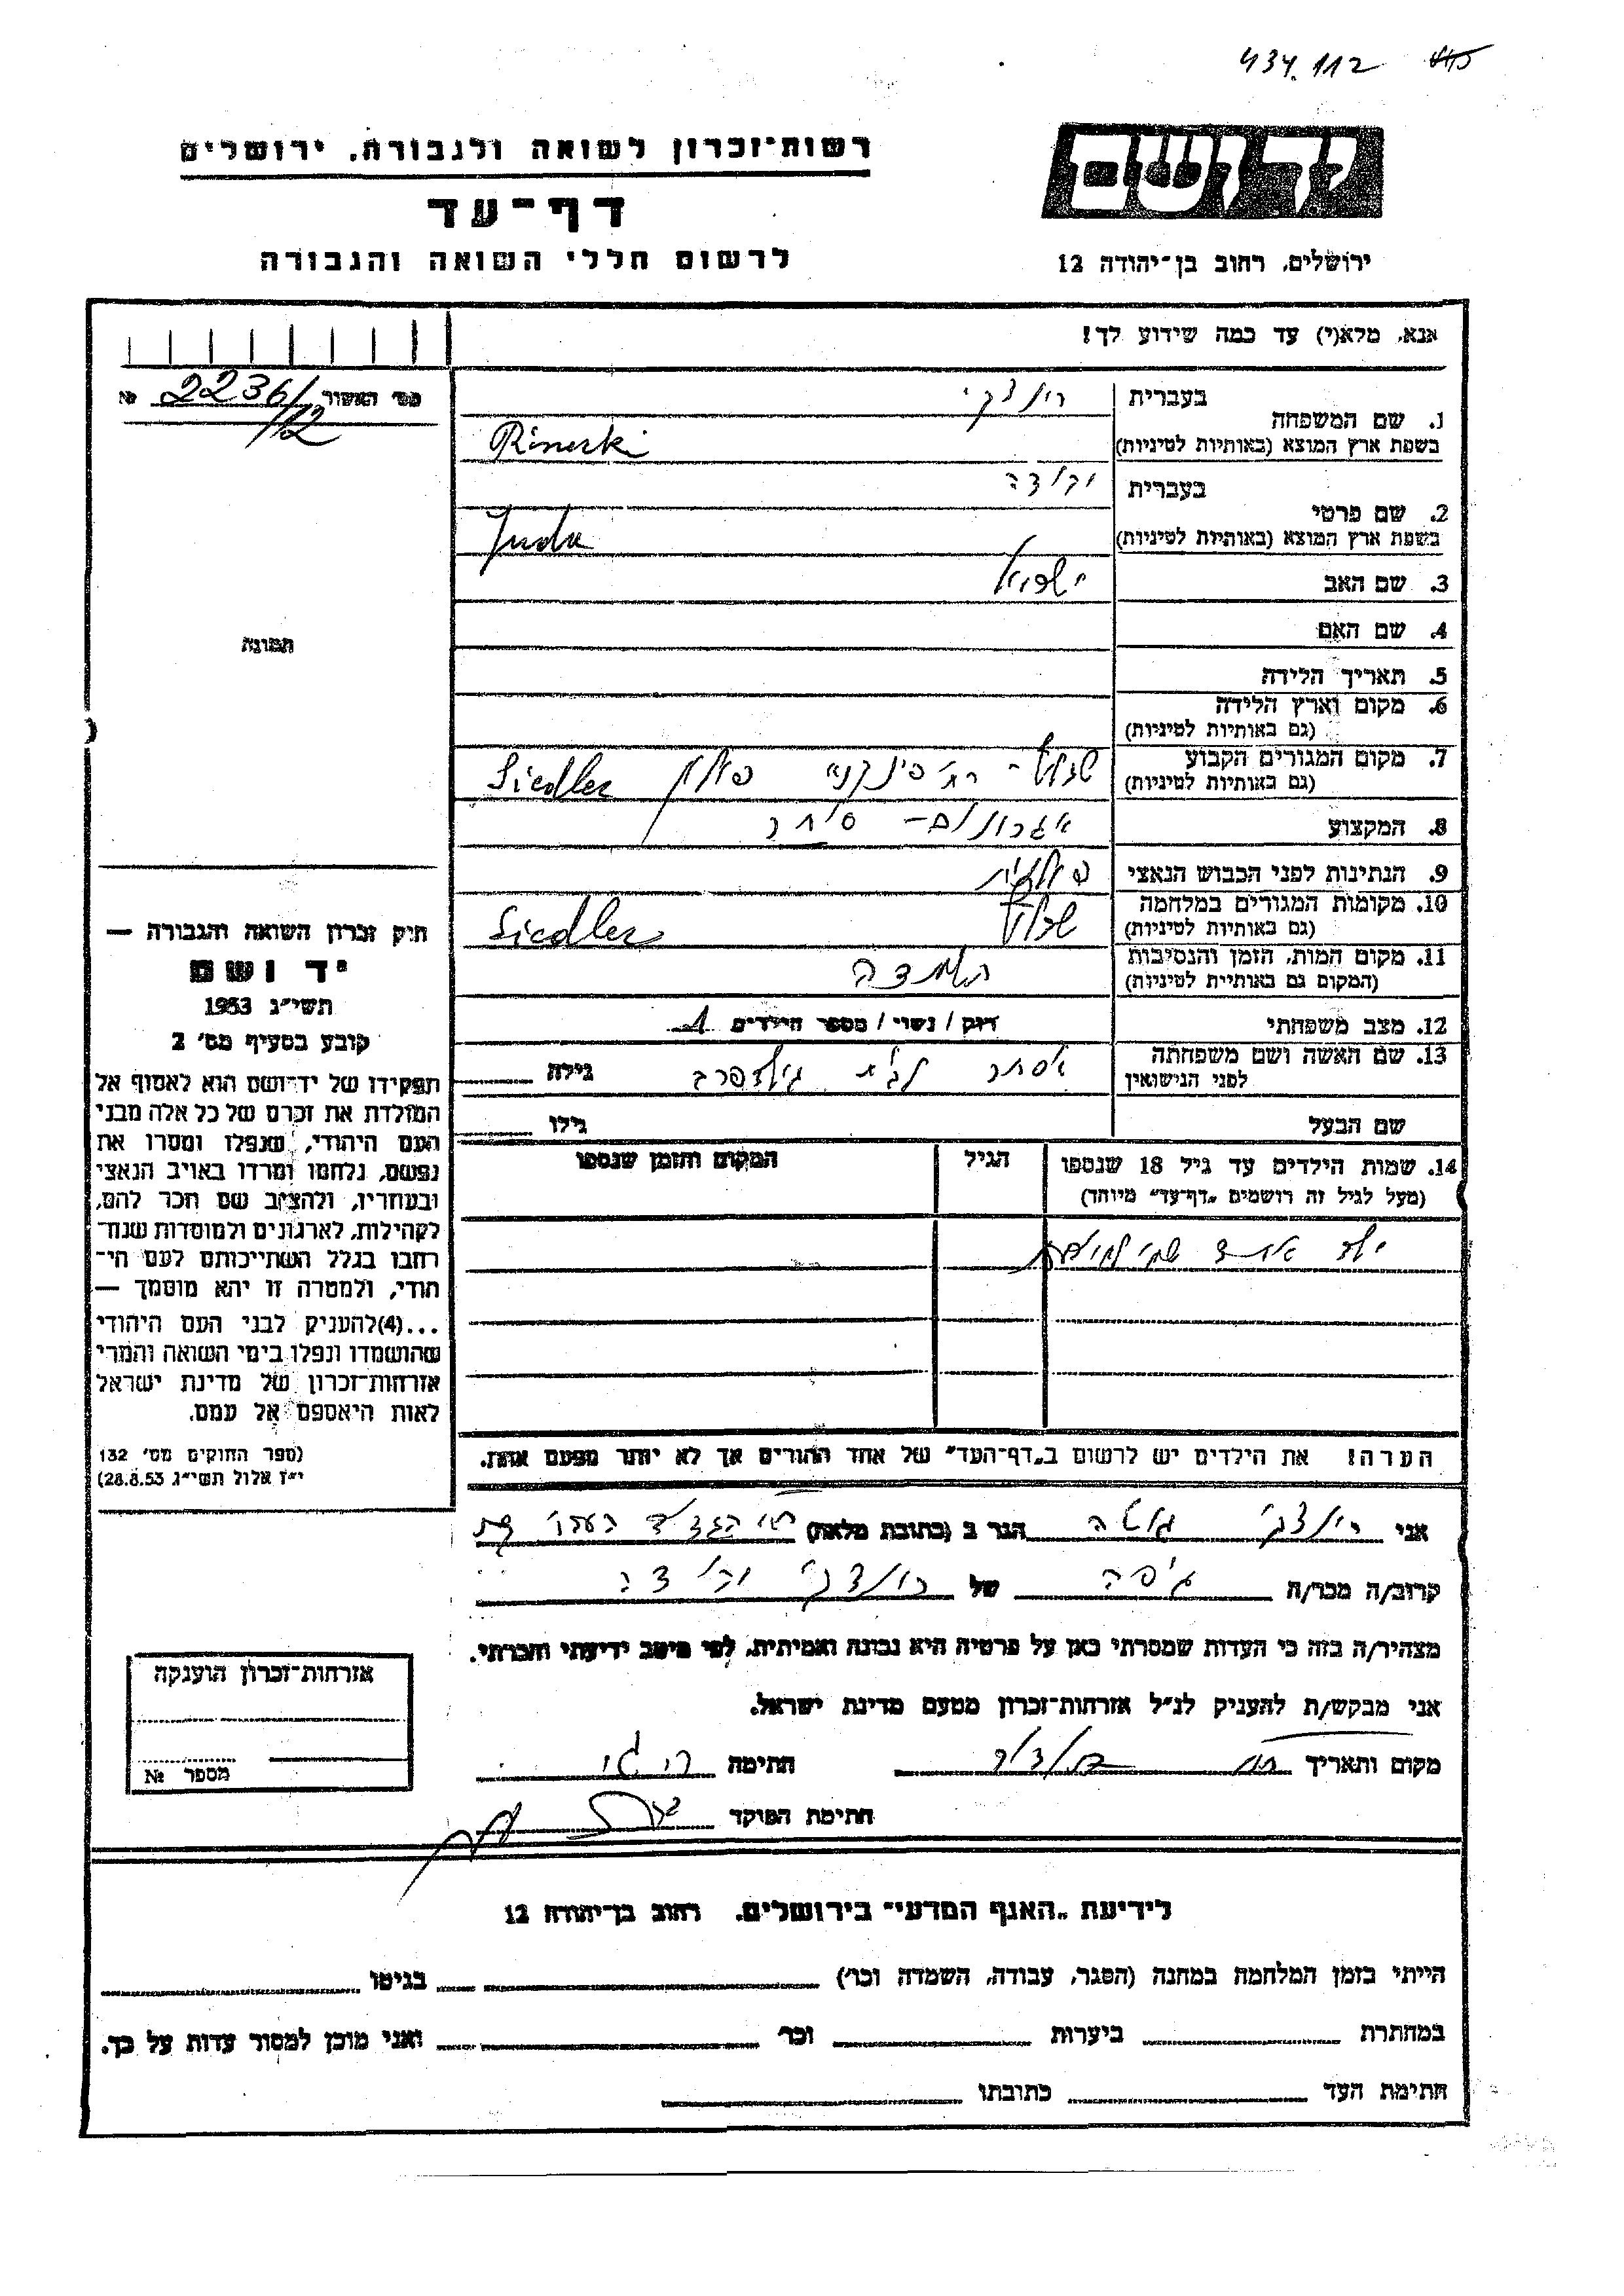 434.112
רשות־זכרון לשואה ולגבורה, ירושלים
דף־עד
לרשום חללי השואה והגבורה
יד ושם
ירושלים, רחוב בן־יהודה 12
אנא, מלא(י) עד כמה שידוע לך!
מס׳ האשור 2236/12 №
1. שם המשפחה
בעברית
בשפת ארץ המוצא (באותיות לטיניות) Rinecki
2. שם פרטי
בעברית יהודה
בשפת ארץ המוצא (באותיות לטיניות) Juda
3. שם האב
4. שם האם
5. תאריך הלידה
6. מקום וארץ הלידה
(גם באותיות לטיניות)
7. מקום המגורים הקבוע פולין Siedlec
(גם באותיות לטיניות)
8. המקצוע אגרונום - סוחר
9. הנתינות לפני הכבוש הנאצי פולנית
10. מקומות המגורים במלחמה שדלץ Siedlec
(גם באותיות לטיניות)
11. מקום המות, הזמן והנסיבות השמדה
(המקום גם באותיות לטיניות)
12. מצב משפחתי רווק / נשוי / מספר הילדים 1
13. שם האשה ושם משפחתה אסתר לבית גולדפרב גילה
לפני הנישואין
שם הבעל גילו
14. שמות הילדים עד גיל 18 שנספו
(מעל לגיל זה רושמים „דף־עד״ מיוחד)
הגיל
המקום והזמן שנספו
ילד אחד
הערה! את הילדים יש לרשום ב„דף־העד״ של אחד ההורים אך לא יותר מפעם אחת.
תמונה
חיק זכרון השואה והגבורה —
יד ושם
תשי״ג 1953
קובע בסעיף מס׳ 2
תפקידו של יד־ושם הוא לאסוף אל
המולדת את זכרם של כל אלה מבני
העם היהודי, שנפלו ומסרו את
נפשם, נלחמו ומרדו באויב הנאצי
ובעוזריו, ולהציב שם וזכר להם,
לקהילות, לארגונים ולמוסדות שנח־
רחבו בגלל השתייכותם לעם הי־
הודי, ולמטרה זו יהא מוסמך —
...(4)להעניק לבני העם היהודי
שהושמדו ונפלו בימי השואה והמרי
אזרחות־זכרון של מדינת ישראל
לאות היאספם אל עמם.
(ספר החוקים מס׳ 132
י״ז אלול תשי״ג 28.8.53)
אני הגר ב (כתובת מלאה)
קרוב/ה מכר/ה גיסה של יהודה
מצהיר/ה בזה כי העדות שמסרתי כאן על פרטיה היא נכונה ואמיתית, לפי מיטב ידיעתי והכרתי.
אני מבקש/ת להעניק לנ״ל אזרחות־זכרון מטעם מדינת ישראל.
מקום ותאריך חתימה
חתימת הפוקד
אזרחות־זכרון הוענקה
מספר №
לידיעת „האגף המדעי״ בירושלים, רחוב בן־יהודה 12
הייתי בזמן המלחמה במחנה (הסגר, עבודה, השמדה וכו׳) בגיטו
במחתרת ביערות וכו׳ ואני מוכן למסור עדות על כך.
חתימת העד כתובתו